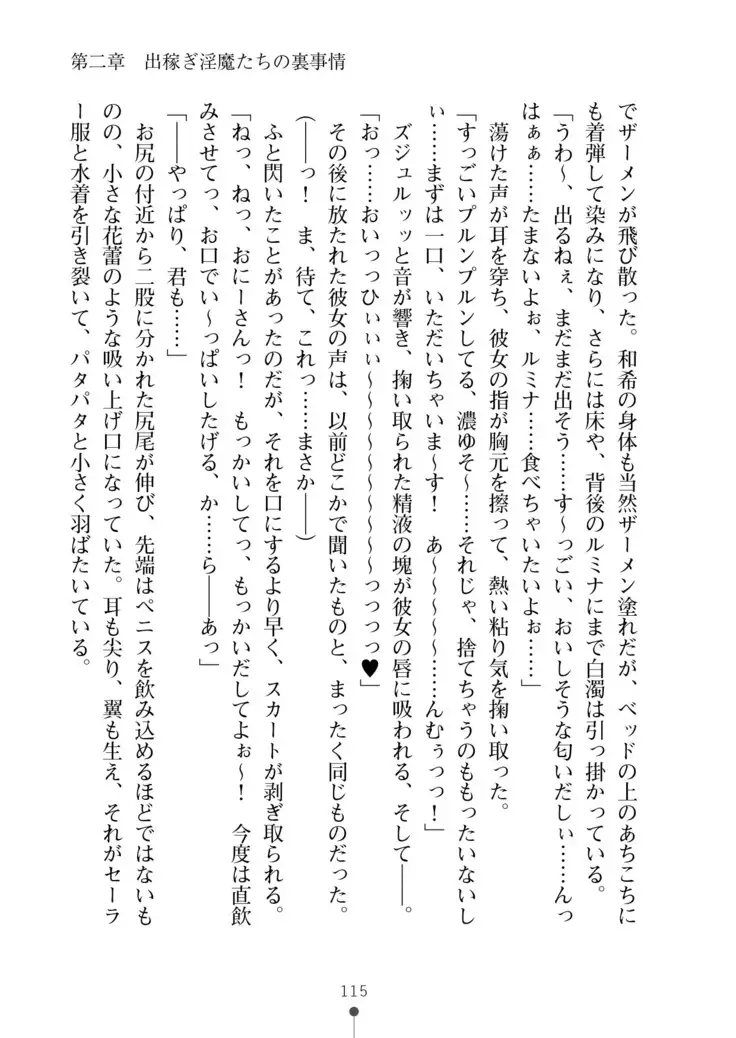 第二章　出稼ぎ淫魔たちの裏事情
でザーメンが飛び散った。和希の身体も当然ザーメン塗れだが、ベッドの上のあちこちに
も着弾して染みになり、さらには床や、背後のルミナにまで白濁は引っ掛かっている。
「うわ～、出るねぇ、まだまだ出そう……す～っごい、おいしそうな匂いだしぃ……んっ
はぁぁ……たまないよぉ、ルミナ……食べちゃいたいよぉ……」
蕩けた声が耳を穿ち、彼女の指が胸元を擦って、熱い粘り気を掬い取った。
「すっごいプルンプルンしてる、濃ゆそ～……それじゃ、捨てちゃうのももったいないし
ぃ……まずは一口、いただいちゃいま～す！　あ～～～～～……んむぅっっ！」
ズジュルッッと音が響き、掬い取られた精液の塊が彼女の唇に吸われる、そして――。
「おっ……おいっっひぃぃぃ～～～～～～～～～～っっっっ♥」
その後に放たれた彼女の声は、以前どこかで聞いたものと、まったく同じものだった。
（――っ！　ま、待て、これっ……まさか――）
ふと閃いたことがあったのだが、それを口にするより早く、スカートが剥ぎ取られる。
「ねっ、ねっ、おにーさんっ！　もっかいしてっ、もっかいだしてよぉ～！　今度は直飲
みさせてっ、お口でい～っぱいしたげる、か……ら――あっ」
「――やっぱり、君も……」
お尻の付近から二股に分かれた尻尾が伸び、先端はペニスを飲み込めるほどではないも
のの、小さな花蕾のような吸い上げ口になっていた。耳も尖り、翼も生え、それがセーラ
ー服と水着を引き裂いて、パタパタと小さく羽ばたいている。
115